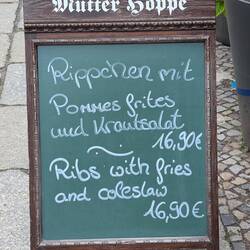 Mutter Hoppe
Rippchen mit
Pommes frites
und Krautsalat
16,90€
Ribs with fries
and coleslaw
16,90€